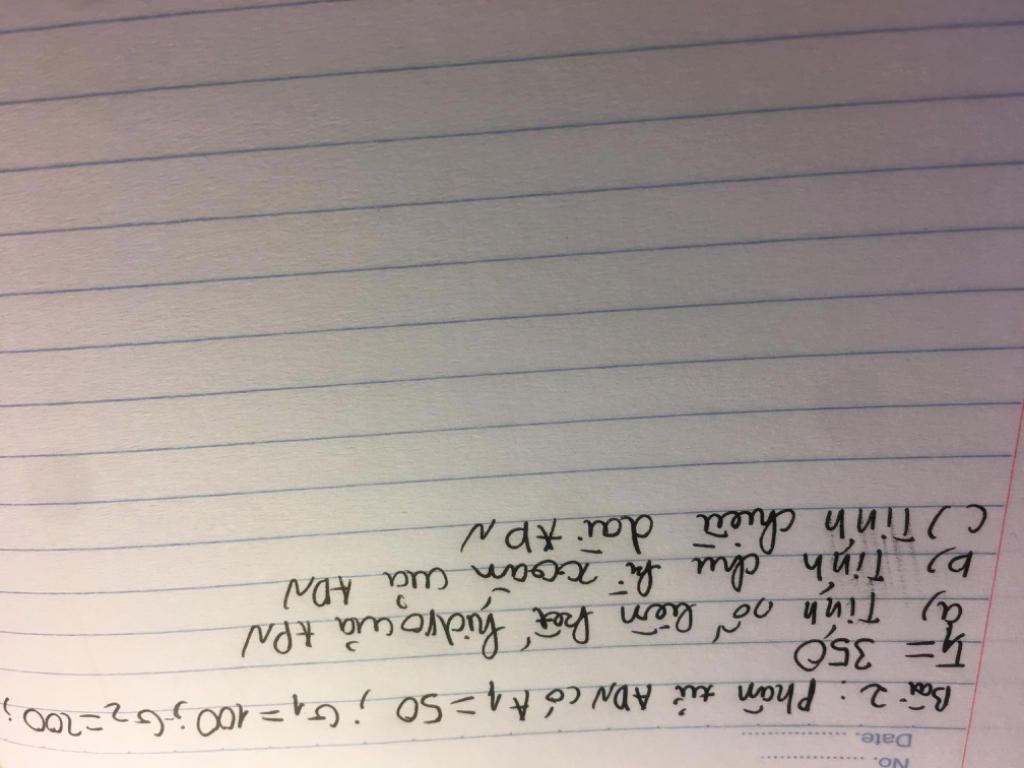 No. ................
Date. ................
Bài 2: Phân tử ADN có A1 = 50; G1 = 100; G2 = 200;
T1 = 350
a) Tính số liên kết hidro của ADN
b) Tính chu kì xoắn của ADN
c) Tính chiều dài ADN